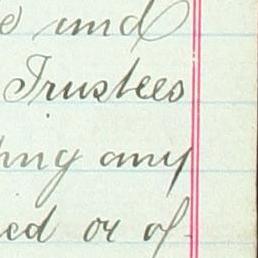 e und
Trustees
ing any
ed or of-